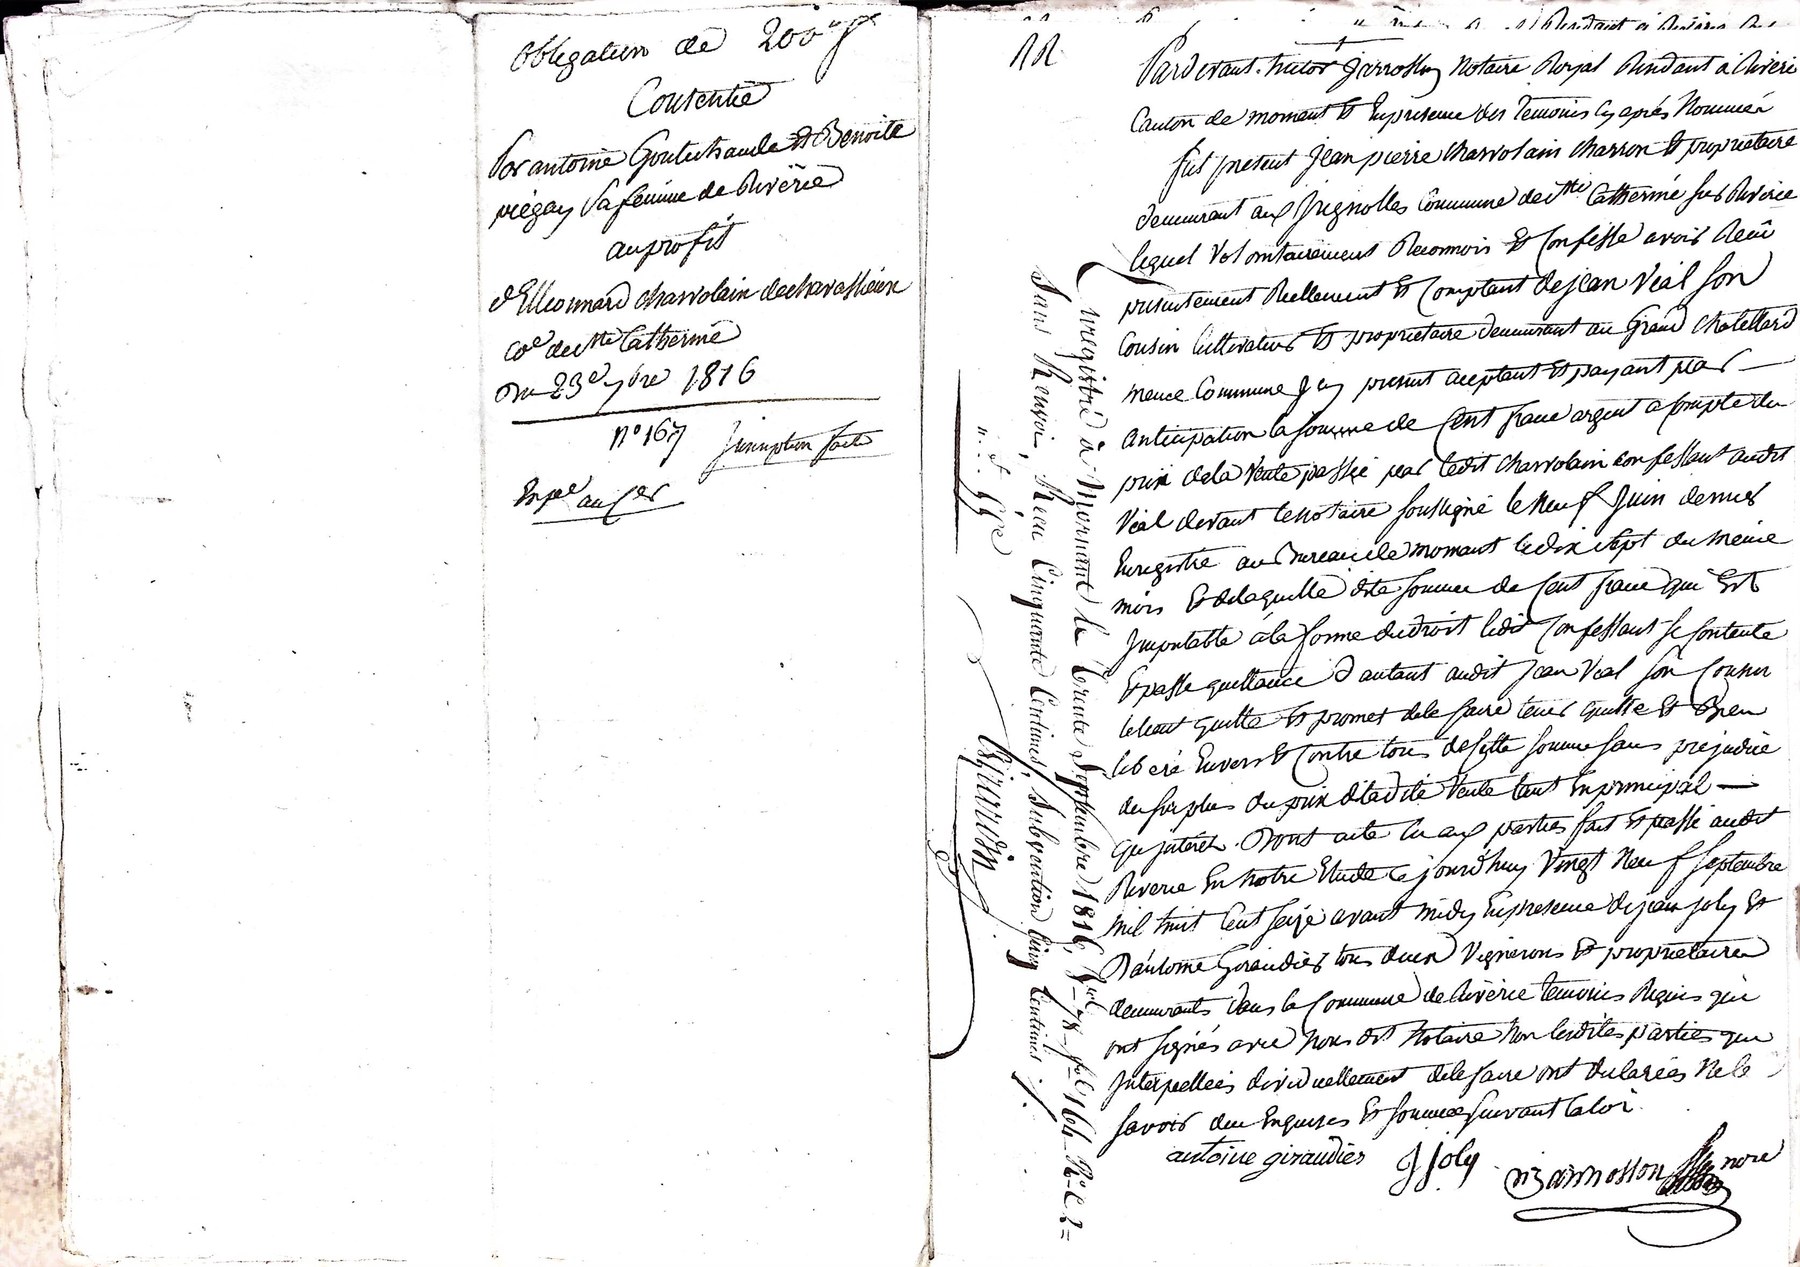 obligation de 200 f
Consentie
Par antoine Goutechaude et Benoite
viegay sa femme de Riverie
au profit
d'Eleonnard charvolain de charassieux
coe de ste Catherine
Du 23e 7bre 1816
n° 167 Inscription faite
Expe au Cer
Pardevant victor Jarrosson Notaire Royal Résidant à Riveri
Canton de mornant Et En presence des temoins cy après Nommés
fut present Jean pierre charvolain charron Et propriétaire
demeurant aux Jugnolles Commune de ste Catherine sus Riverie
lequel Volontairement Reconnois Et Confesse avoir Recû
presentement Reellement Et Comptant de jean Vial son
Cousin Cultivateur Et proprietaire demeurant au Grand Chatellard
meme Commune Icy present aceptant Et payant par
anticipation la somme de Cent franc argent a Compte du
prix de la Vente passée par ledit Charvolain confessant audit
Vial devant le notaire soussigné le neuf Juin dernier
Enregistré au Bureau de mornant le dix sept du même
mois Et de laquelle dite somme de Cent franc qui Est
Imputable à la forme du droit ledit Confessant se Contente
Et passe quittance d'autant audit Jean Vial son Cousin
le tient quitte Et promet de le faire tenir quitte Et Bien
libéré Envers Et Contre tous de cette somme sans prejudice
du surplus du prix de ladite Vente tant En principal
qu'intérêt. Dont acte lu aux parties fait Et passé audit
Riverie En notre Etude ce jourd'huy Vingt Neuf Septembre
mil huit Cent seize avant midy En presence de jean joly Et
D'antoine Giraudier tous deux Vignerons Et proprietaires
demeurants dans la Commune de Riverie temoins Requis qui
ont signés avec Nous dit Notaire non lesdites parties qui
Interpellées dividuellement de le faire ont declarées Ne le
savoir due Enquises Et sommées suivant la loi.
antoine giraudier J joly Jarrosson nore
Enregistré à Mornant le trente Septembre 1816, Vol. 78. fol. 164. Ro. C. 2
Sans Renvoi, Recu Cinquante Centimes, Subvention Cinq Centimes
Girardin